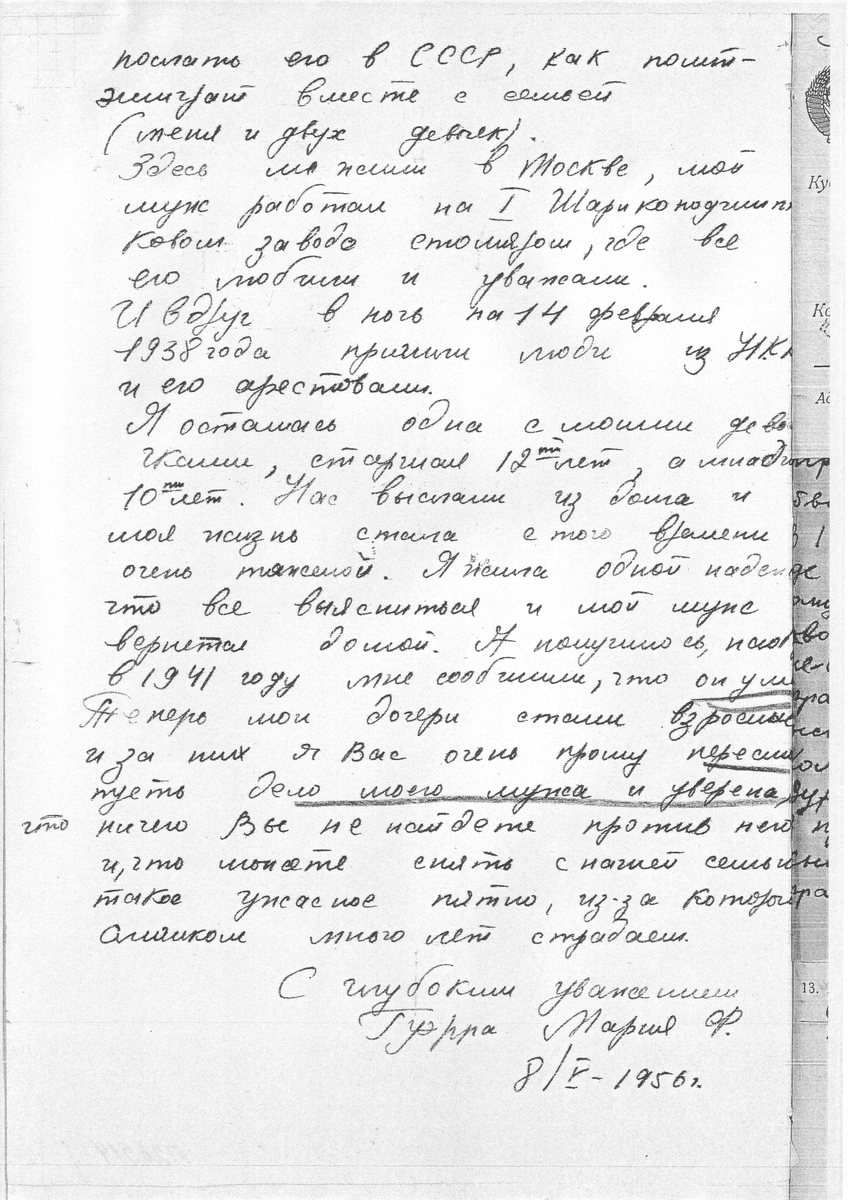 послать его в СССР, как полит-
эмигрант вместе с семьей
(меня и двух девочек).
Здесь мы жили в Москве, мой
муж работал на I Шарикоподшипни
ковом заводе столяром, где все
его любили и уважали.
И вдруг в ночь на 14 февраля
1938 года пришли люди из Н.К
и его арестовали.
Я осталась одна с моими дево
чками, старшая 12ти лет, а младш
10ти лет. Нас выслали из дома и
моя жизнь стала с того времени
очень тяжелой. Я жила одной надежд
что все выясниться и мой муж
вернется домой. А получилось, нао
в 1941 году мне сообщили, что он ум
Теперь мои дочери стали взрослые
и за них я Вас очень прошу пересм
пусть дело моего мужа и уверена,
что ничего Вы не найдете против него
и, что можете снять с нашей семьи
такое ужасное пятно, из-за которы
слишком много лет страдаем.
С глубоким уважением
Гуэрра Мария Ф.
8/V-1956г.
Ку
Ко
Ад
13.